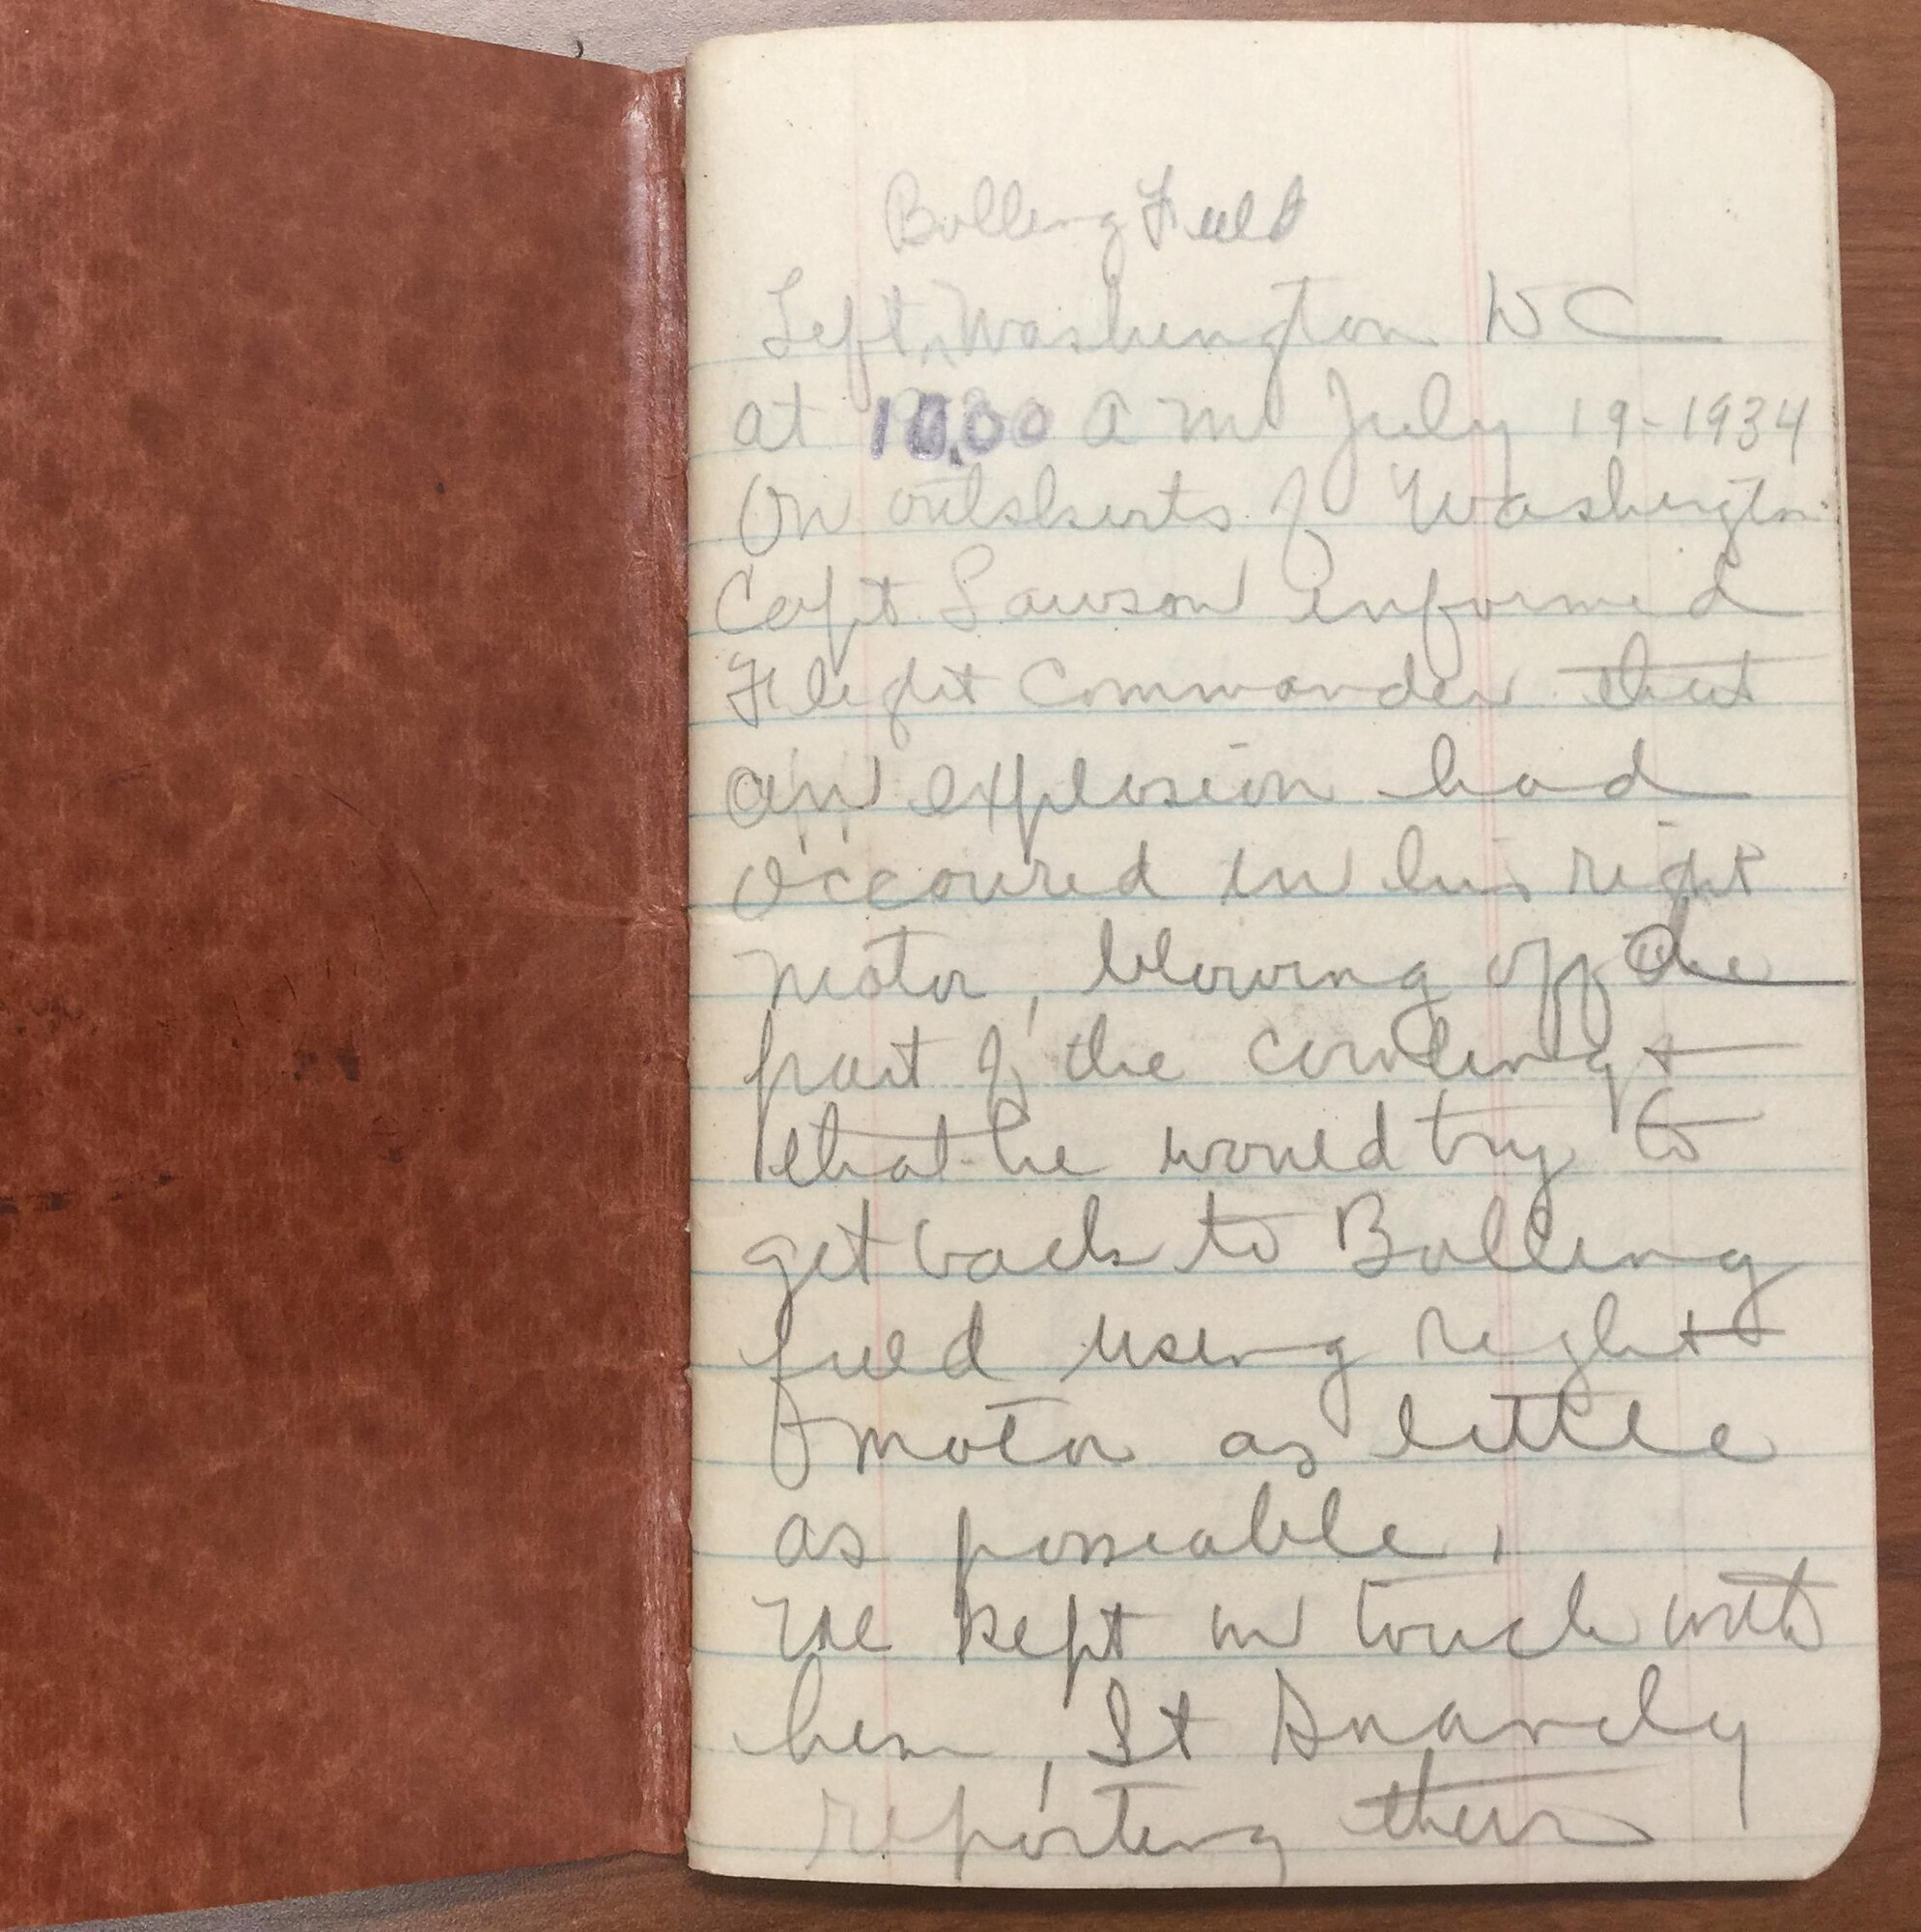 Bolling Field
Left Washington DC
at 10.00 a m July 19-1934
On outskirts of Washington
Capt Lawson informed
Flight Commander that
an explosion had
occoured in his right
motor, blowing off
part of the cowling +
that he would try to
get back to Bolling
field using right
motor as little
as posseable.
We kept in touch with
him, Lt
reporting their